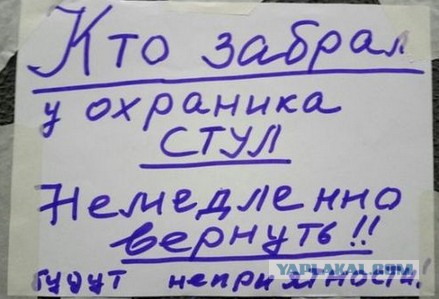 Кто забрал
у охраника
СТУЛ
Немедленно
вернуть!!
будут неприятности!
YAPLAKAL.COM